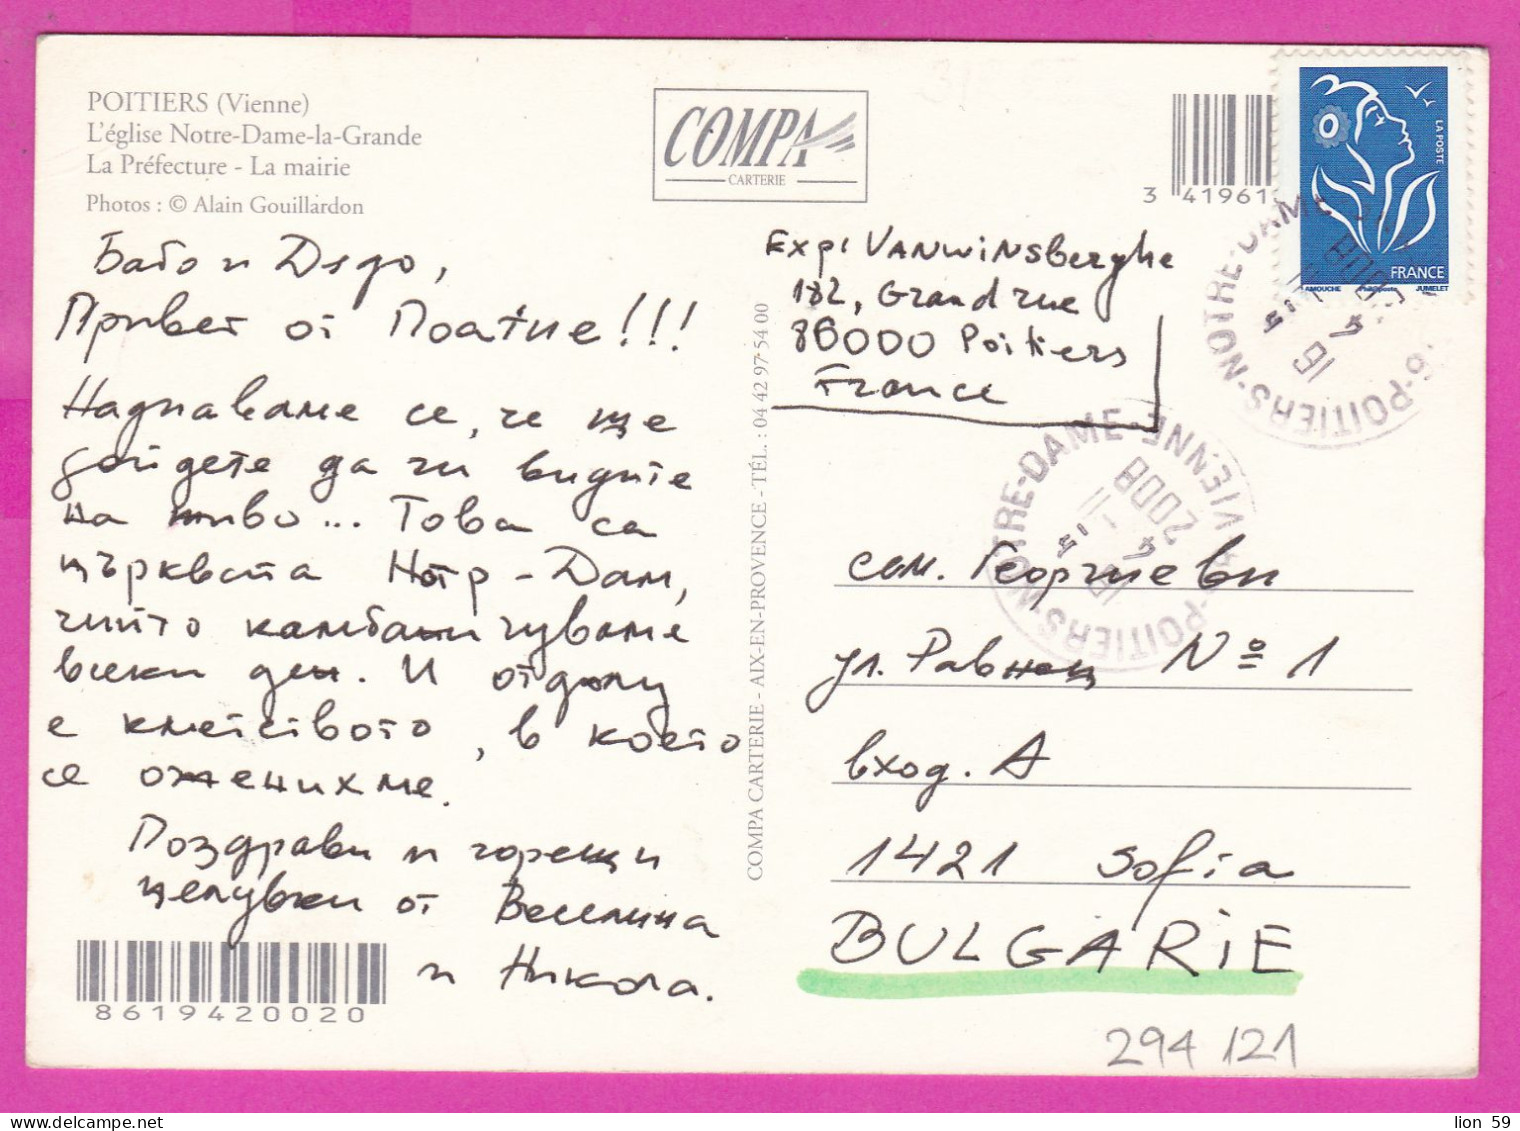 POITIERS (Vienne)
L'église Notre-Dame-la-Grande
La Préfecture - La mairie
Photos : © Alain Gouillardon
COMPA
CARTERIE
3 41961
LA POSTE
FRANCE
LAMOUCHE Phil@poste JUMELET
Бабо и Дядо,
Привет от Поатие!!!
Надяваме се, че ще
дойдете да ги видите
на живо... Това са
църквата Нотр-Дам,
чийто камбани чуваме
всеки ден. И отдолу
е кметството, в което
се оженихме.
Поздрави и горещи
целувки от Веселина
и Никола.
8619420020
COMPA CARTERIE - AIX-EN-PROVENCE - TÉL. : 04 42 97 54 00
Exp: VANWINSberghe
182, Grand rue
86000 Poitiers
France
POITIERS-NOTRE-DAME
16 4 2008
POITIERS-NOTRE-DAME-VIENNE
16 4 2008
сем. Георгиеви
ул. Равнец № 1
вход. А
1421 Sofia
BULGARIE
294 121
lion 59